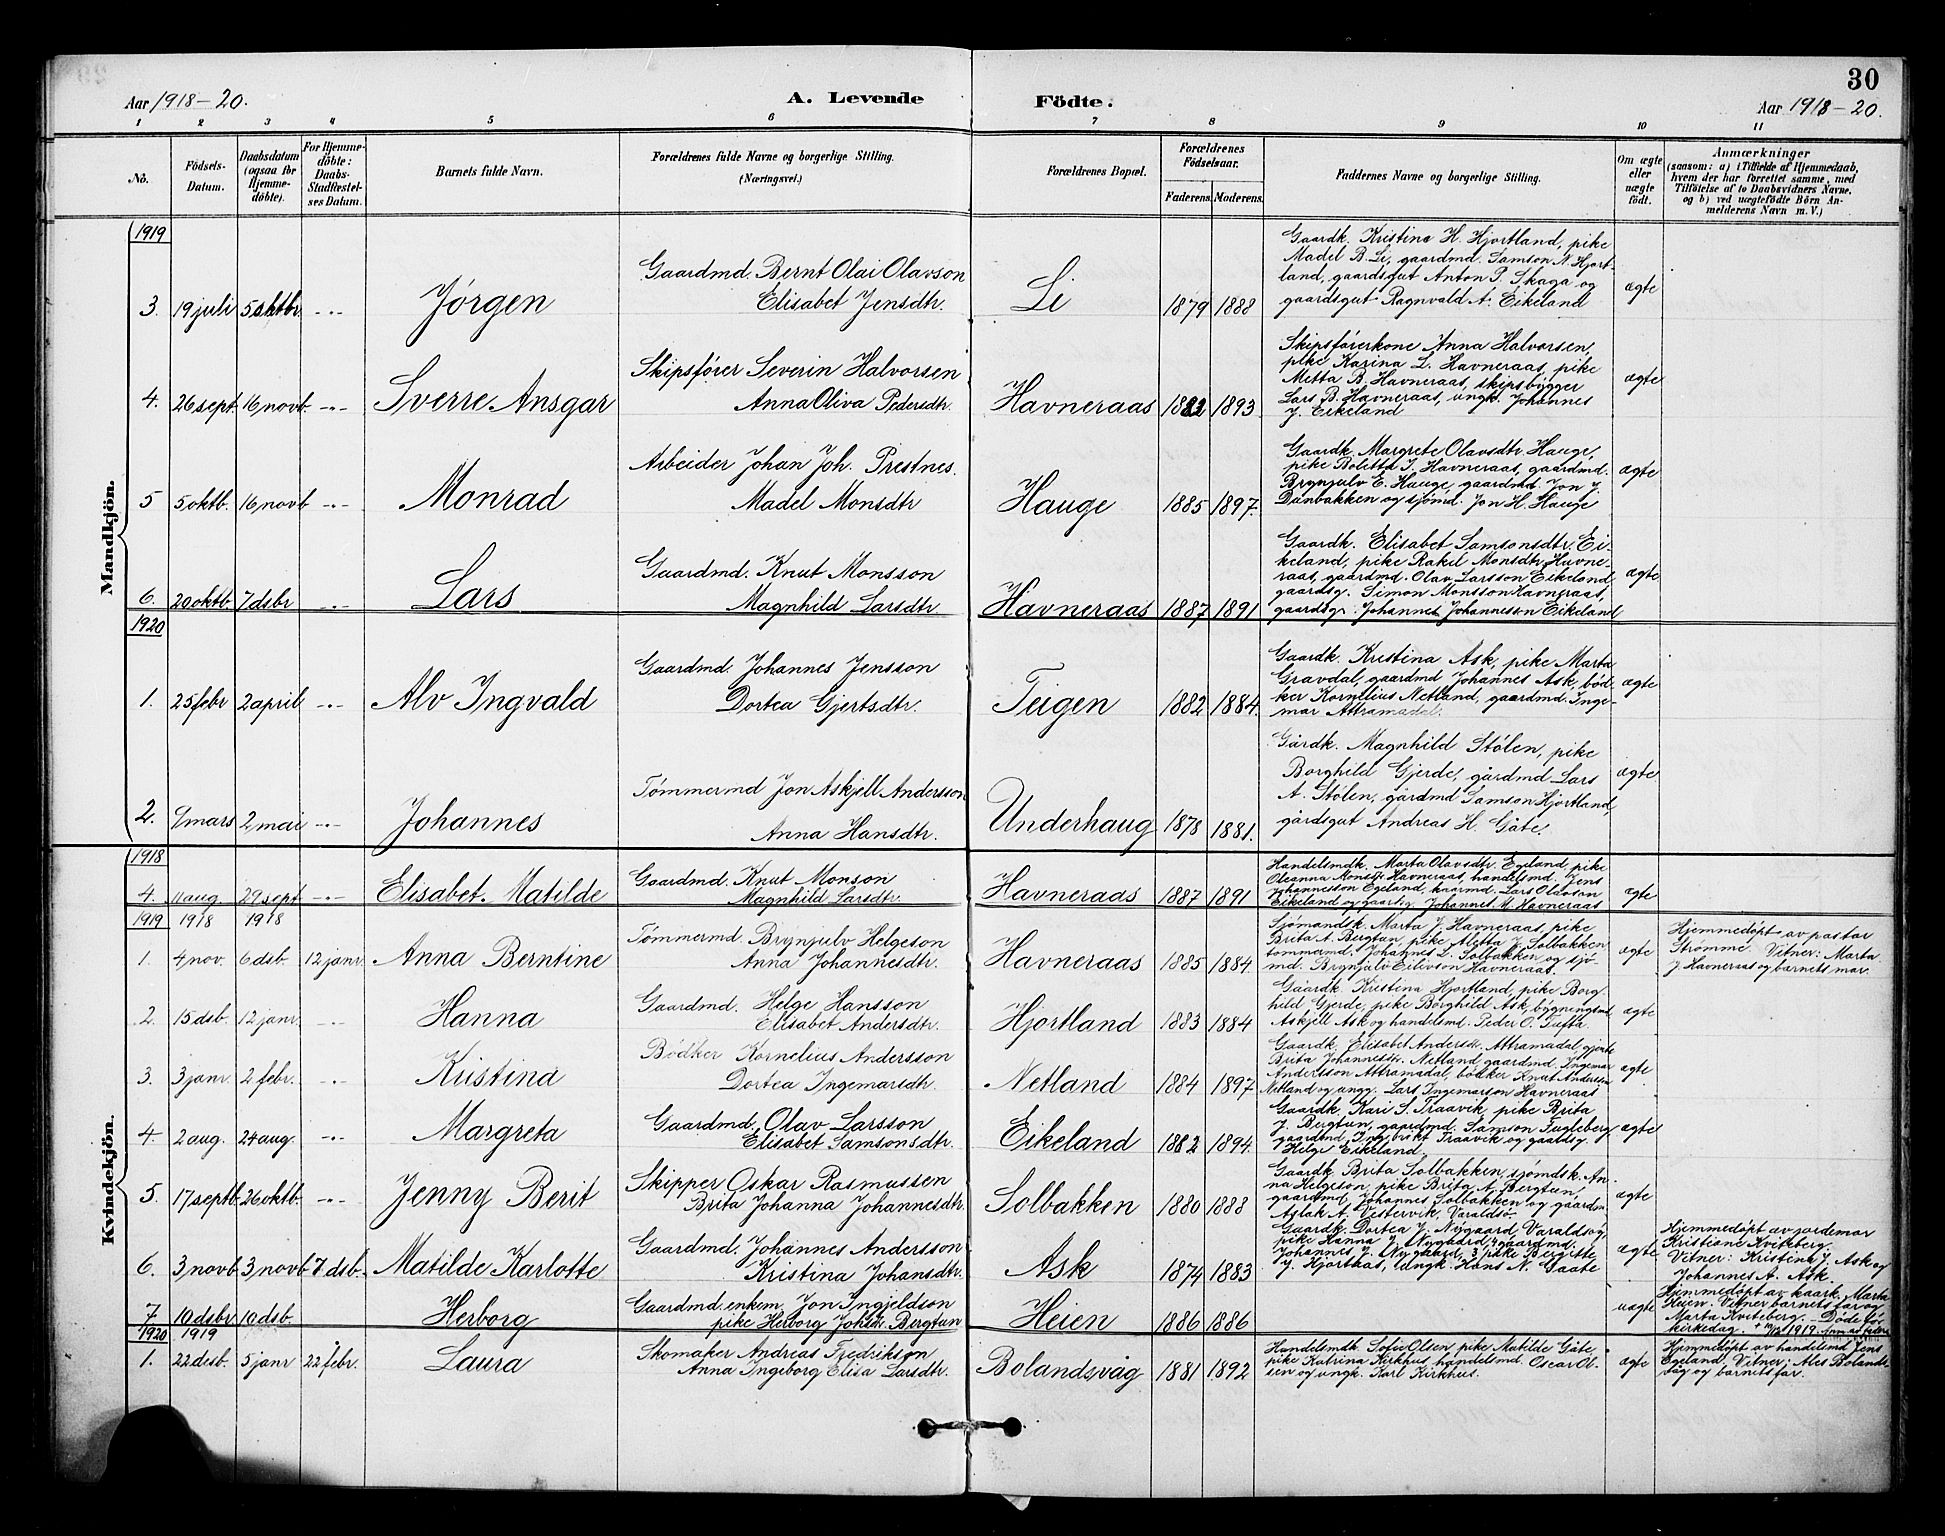 30
Aar 1918-20. A. Levende Födte. Aar 1918-20.
1 2 3 4 5 6 7 8 9 10 11
No. Födsels-Datum. Daabsdatum (ogsaa för Hjemmedöbte). For Hjemmedöbte: Daabs-Stadfæstelses Datum. Barnets fulde Navn. Forældrenes fulde Navne og borgerlige Stilling. (Næringsvei.) Forældrenes Bopæl. Forældrenes Födselsaar. Faderens. Moderens. Faddernes Navne og borgerlige Stilling. Om ægte eller uægte födt. Anmærkninger (saasom: a) i Tilfælde af Hjemmedaab, hvem der har forrettet samme, med Tilföielse af to Daabsvidners Navne, og b) ved uægtefödte Börn Anmelderens Navn m. V.)
Mandkjön.
1919
3. 19 juli 5 oktbr -"- Jørgen Gaardmd. Bernt Olai Olavson
Elisabet Jensdtr. Li 1879 1888
Gaardk. Kristina H. Hjortland, pike
Madel B. Li, gaardmd. Samson N. Hjort-
land, gaardsgut Anton P. Skaga og
gaardsgut Ragnvald A. Eikeland
ægte
4. 26 sept. 16 novb. -"- Sverre Ansgar Skipsfører Severin Halvorsen
Anna Oliva Pedersdtr. Havneraas 1882 1893
Skipsførerkone Anna Halvorsen,
pike Karina L. Havneraas, pike
Metta B. Havneraas, skipsbygger
Lars B. Havneraas, ungk. Johannes
J. Eikeland
ægte
5 5 oktb. 16 novb -"- Monrad Arbeider Johan Joh. Prestnes.
Madel Monsdtr Hauge 1885 1897.
Gaardk. Margrete Olavsdtr Hauge,
pike Boletta I. Havneraas, gaardmd.
Brynjulv E. Hauge, gaardmd Jon J.
Danbakken og sjømd. Jon H. Hauge
ægte
6. 20 oktb 7 dsbr -"- Lars Gaardmd. Knut Monsson
Magnhild Larsdtr Havneraas 1887 1891
Gaardk. Elisabet Samsonsdtr. Ei-
keland, pike Rakel Monsdtr Havne-
raas, gaardmd. Olav Larsson Eikeland
gaardsg. Simon Monsson Havneraas,
gaardsg. Johannes Johannesson Eikeland
ægte
1920
1. 25 febr 2 april -"- Alv Ingvald Gaardmd Johannes Jensson
Dortea Gjertsdtr. Teigen 1882 1884.
Gaardk. Kristina Ask, pike Marta
Gravdal, gaardmd Johannes Ask, bød-
ker Kornelius Netland, gaardmd. Inge-
mar Attramadal.
ægte
2. 9 mars 2 mai -"- Johannes Tømmermd Jon Askjell Andersson
Anna Hansdtr. Underhaug 1878 1881.
Gårdk. Magnhild Stólen, pike
Borghild Gjerde, gårdmd Lars
A. Stólen, gårdmd Samson Hjortland,
gårdsgut Andreas H. Gåte.
ægte
Kvindekjön.
1918
4. 11 aug. 29 sept -"- Elisabet Matilde Gaardmd. Knut Monson
Magnhild Larsdtr. Havneraas 1887 1891
Handelsmdk. Marta Olavsdtr. Egeland, pike
Oleanna Monsdtr Havneraas, handelsmd. Jens
Johannesson Egeland, gaardmd. Lars Olavson
Eikeland og gaardsg. Johannes M. Havneraas
ægte
1919 1918 1918
1. 4 nov. 6 dsb. 12 janr. Anna Berntine Tømmermd. Brynjulv Helgeson
Anna Johannesdtr. Havneraas 1885 1884
Sjømandsk. Marta J. Havneraas, pike
Brita A. Bergtun, pike Aletta J. Solbakken
tømmermd. Johannes L. Solbakken og sjø-
md. Brynjulv Eilivson Havneraas.
ægte
Hjemmedøpt av pastor
Strømme Vitner: Marta
J. Havneraas og barnets mor.
2. 15 dsb. 12 janr. -"- Hanna Gaardmd. Helge Hansson
Elisabet Andersdtr. Hjortland 1883 1884
Gaardk. Kristina Hjortland, pike Borg-
hild Gjerde, pike Borghild Ask, bygningsmd
Askjell Ask og handelsmd. Peder O. Tufta.
ægte
3. 3 janr. 2 febr. -"- Kristina Bødker Kornelius Andersson
Dortea Ingemarsdtr. Netland 1884 1897
Gaardk. Elisabet Andersdtr. Attramadal, gjente
Brita Johannesdtr. Netland gaardmd. Ingemar
Andersson Attramadal, bødker Knut Andersson
Netland og ungg. Lars Ingemarson Havneraas
ægte
4. 2 aug. 24 aug. -"- Margreta Gaardmd. Olav Larsson
Elisabet Samsonsdtr. Eikeland 1882 1894.
Gaardk. Kari S. Traavik, pike Brita
J. Bergtun, gaardmd. Samson Fugleberg
gaardmd. Ingebrikt Traavik og gaardsg.
Helge Eikeland.
ægte
5. 17 septb. 26 oktb. -"- Jenny Berit Skipper Oskar Rasmussen
Brita Johanna Johannesdtr. Solbakken 1880 1888
Gaardk. Brita Solbakken, sjømdsk. An-
na Helgeson, pike Brita A. Bergtun,
gaardmd. Johannes Solbakken og gaardm.
Aslak A. Vestervik, Varaldsø
ægte
6. 3 novb 3 novb 7 dsb. Matilde Karlotte Gaardmd. Johannes Andersson
Kristina Johansdtr. Ask 1874 1883
Gaardk. Dortea J. Nygaard, Varaldsøy,
pike Hanna J. Nygaard, gaardmd.
Johannes J. Nygaard, pike Bergitte
J. Hjortaas, ungk. Hans N. Gaate
ægte
Hjemmedøpt av jordemor
Kristiane Kviteberg.
Vitner: Kristina J. Ask og
Johannes A. Ask.
7 10 dsbr 10 dsb. Herborg Gaardmd. enkem. Jon Ingjeldson
pike Herborg Johsdtr. Bergtun Heien 1886 1886
uægte
Hjemmedøpt av kaark. Marta
Heien. Vitner barnets far og
Marta Kviteberg. Døde før
kirkedag. 1919.
1920 1919
1. 22 desb. 5 janr 22 febr. Laura Skomaker Andreas Fredrikson
Anna Ingeborg Elisa Larsdtr. Bolandsvåg 1881 1892
Handelsmdk. Sofie Olsen, pike Matilde Gåte,
pike Katrina Kirkhus, handelsmd. Oscar Ol-
sen og ungk. Karl Kirkhus.
ægte
Hjemmedøpt av handelsmd Jens
Egeland. Vitner: Ales Bolands-
våg og barnets far.